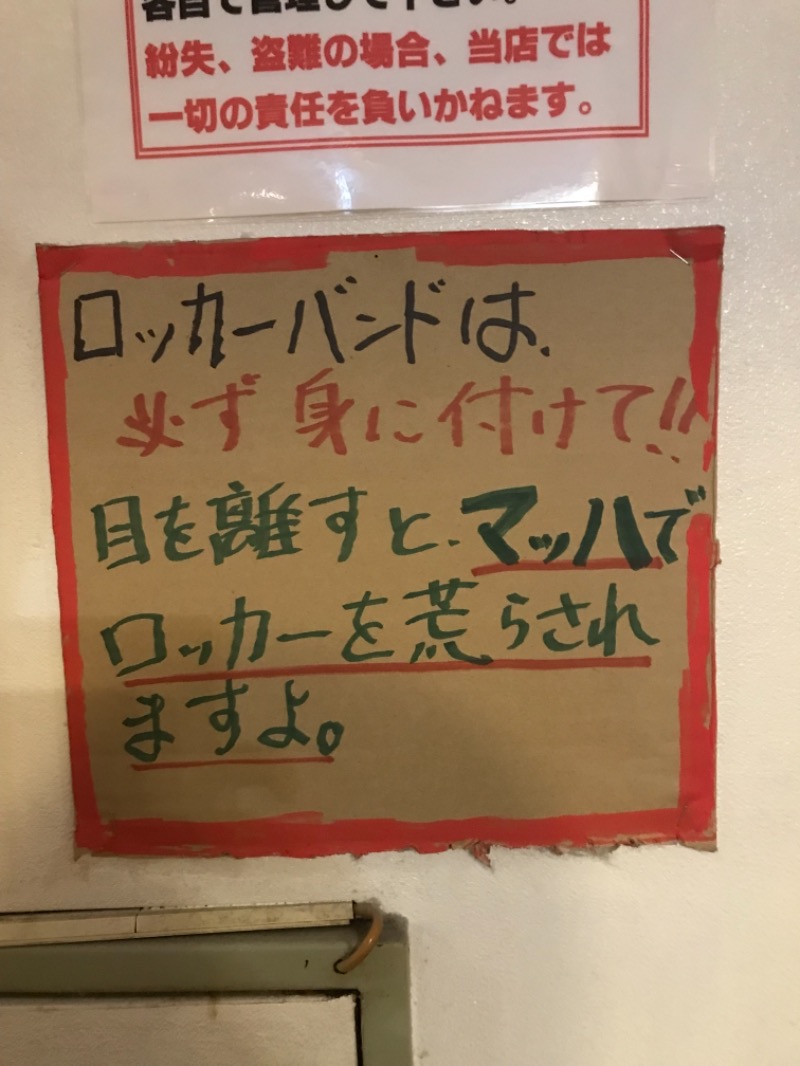 各自で管理して下さい。
紛失、盗難の場合、当店では
一切の責任を負いかねます。
ロッカーバンドは、
必ず身に付けて!!
目を離すと、マッハで
ロッカーを荒らされ
ますよ。